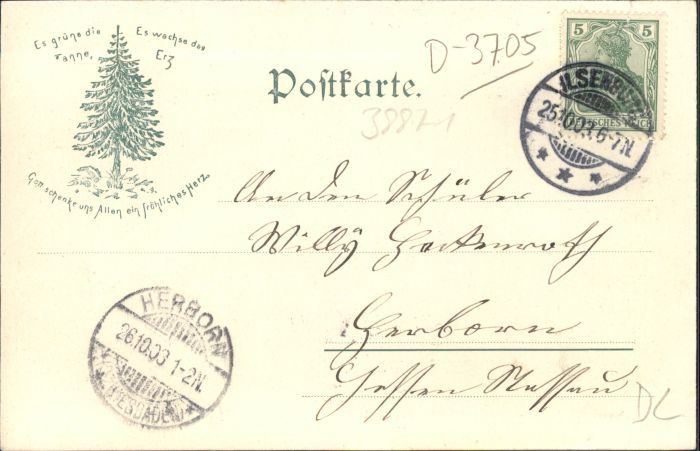 Es grüne die Tanne,
Es wachse das Erz
Gott schenke uns Allen ein fröhliches Herz.
Postkarte.
D-3705
38871
5 5
DEUTSCHES REICH
ILSENBURG
25.10.03.6-7N.
An den Schüler
Willy Hackenroth
Herborn
Hessen Nassau
HERBORN
26.10.03 1-2N.
(WIESBADEN)
DL